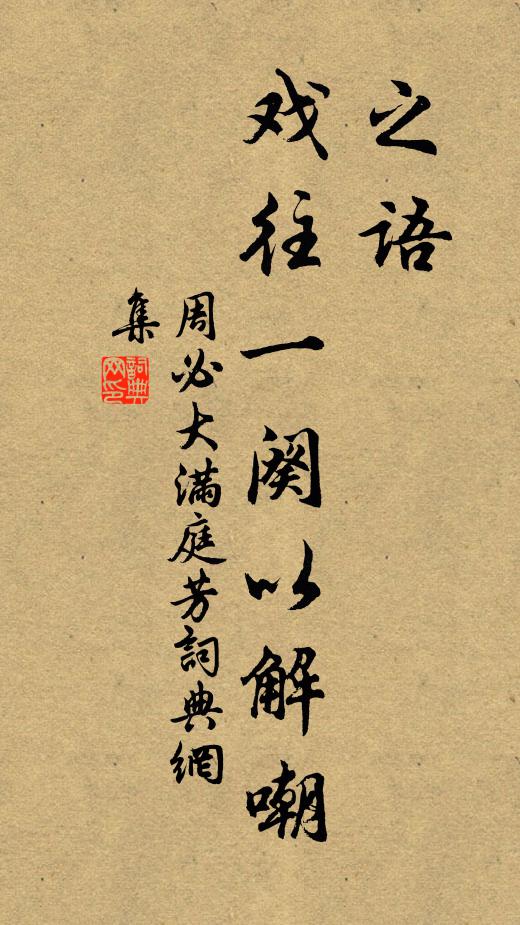 之语
戏往一阕以解嘲
周必大满庭芳詞典網
集
詞典网印